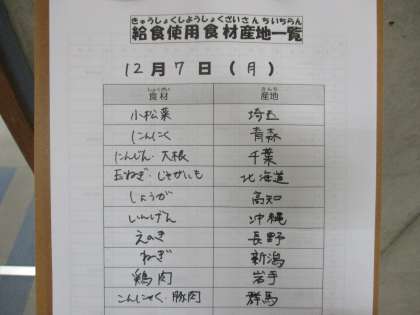 きゅうしょくしようしょくざいさんちいちらん
給食使用食材産地一覧
12月7日(月)
しょくざい さんち
食材 産地
小松菜 埼玉
にんにく 青森
にんじん・大根 千葉
玉ねぎ・じゃがいも 北海道
しょうが 高知
いんげん 沖縄
えのき 長野
ねぎ 新潟
鶏肉 岩手
こんにゃく・豚肉 群馬